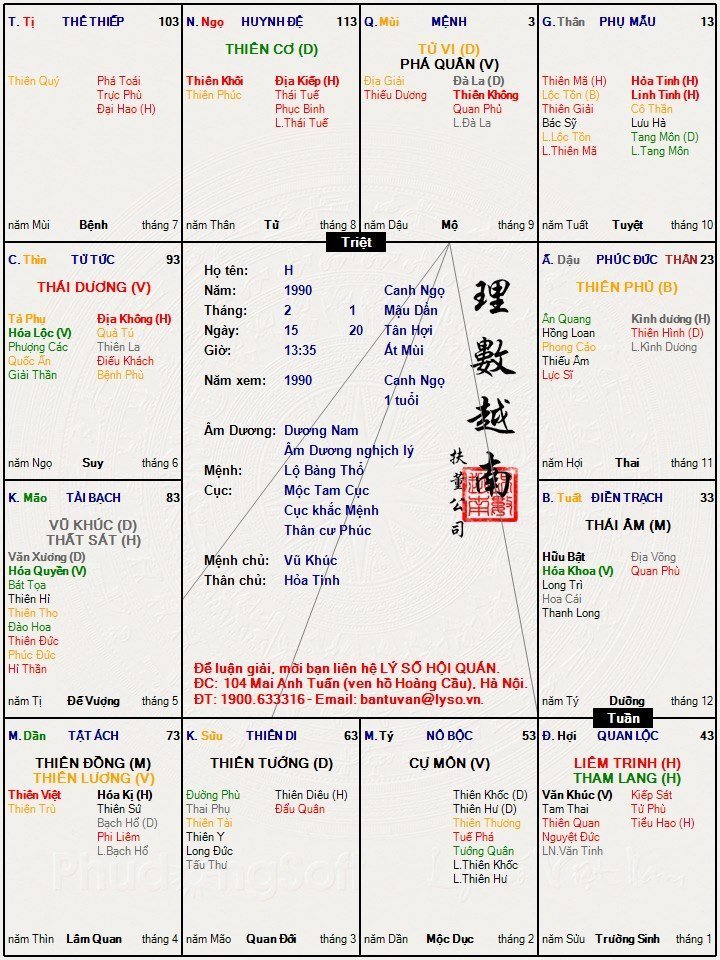 T. Tị THÊ THIẾP 103
Thiên Quý
Phá Toái
Trực Phù
Đại Hao (H)
năm Mùi Bệnh tháng 7
N. Ngọ HUYNH ĐỆ 113
THIÊN CƠ (D)
Thiên Khôi
Thiên Phúc
Địa Kiếp (H)
Thái Tuế
Phục Binh
L.Thái Tuế
năm Thân Tử tháng 8
Q. Mùi MỆNH 3
TỬ VI (D)
PHÁ QUÂN (V)
Địa Giải
Thiếu Dương
Đà La (D)
Thiên Không
Quan Phủ
L.Đà La
năm Dậu Mộ tháng 9
G. Thân PHỤ MẪU 13
Thiên Mã (H)
Lộc Tồn (B)
Thiên Giải
Bác Sỹ
L.Lộc Tồn
L.Thiên Mã
Hỏa Tinh (H)
Linh Tinh (H)
Cô Thần
Lưu Hà
Tang Môn (D)
L.Tang Môn
năm Tuất Tuyệt tháng 10
Triệt
C. Thìn TỬ TỨC 93
THÁI DƯƠNG (V)
Tả Phụ
Hóa Lộc (V)
Phượng Các
Quốc Ấn
Giải Thần
Địa Không (H)
Quả Tú
Thiên La
Điếu Khách
Bệnh Phù
năm Ngọ Suy tháng 6
Họ tên: H
Năm: 1990 Canh Ngọ
Tháng: 2 1 Mậu Dần
Ngày: 15 20 Tân Hợi
Giờ: 13:35 Ất Mùi
Năm xem: 1990 Canh Ngọ
1 tuổi
Âm Dương: Dương Nam
Âm Dương nghịch lý
Mệnh: Lộ Bàng Thổ
Cục: Mộc Tam Cục
Cục khắc Mệnh
Thân cư Phúc
Mệnh chủ: Vũ Khúc
Thân chủ: Hỏa Tinh
理數越南
扶董公司
Để luận giải, mời bạn liên hệ LÝ SỐ HỘI QUÁN.
ĐC: 104 Mai Anh Tuấn (ven hồ Hoàng Cầu), Hà Nội.
ĐT: 1900.633316 - Email: bantuvan@lyso.vn.
Ấ. Dậu PHÚC ĐỨC THÂN 23
THIÊN PHỦ (B)
Ân Quang
Hồng Loan
Phong Cáo
Thiếu Âm
Lực Sĩ
Kình dương (H)
Thiên Hình (D)
L.Kình Dương
năm Hợi Thai tháng 11
K. Mão TÀI BẠCH 83
VŨ KHÚC (D)
THẤT SÁT (H)
Văn Xương (D)
Hóa Quyền (V)
Bát Tọa
Thiên Hỉ
Thiên Thọ
Đào Hoa
Thiên Đức
Phúc Đức
Hỉ Thần
năm Tị Đế Vượng tháng 5
B. Tuất ĐIỀN TRẠCH 33
THÁI ÂM (M)
Hữu Bật
Hóa Khoa (V)
Long Trì
Hoa Cái
Thanh Long
Địa Võng
Quan Phù
năm Tý Dưỡng tháng 12
Tuần
M. Dần TẬT ÁCH 73
THIÊN ĐỒNG (M)
THIÊN LƯƠNG (V)
Thiên Việt
Thiên Trù
Hóa Kị (H)
Thiên Sứ
Bạch Hổ (D)
Phi Liêm
L.Bạch Hổ
năm Thìn Lâm Quan tháng 4
K. Sửu THIÊN DI 63
THIÊN TƯỚNG (D)
Đường Phù
Thai Phụ
Thiên Tài
Thiên Y
Long Đức
Tấu Thư
Thiên Diêu (H)
Đẩu Quân
năm Mão Quan Đới tháng 3
M. Tý NÔ BỘC 53
CỰ MÔN (V)
Thiên Khốc (D)
Thiên Hư (D)
Thiên Thương
Tuế Phá
Tướng Quân
L.Thiên Khốc
L.Thiên Hư
năm Dần Mộc Dục tháng 2
Đ. Hợi QUAN LỘC 43
LIÊM TRINH (H)
THAM LANG (H)
Văn Khúc (V)
Tam Thai
Thiên Quan
Nguyệt Đức
LN.Văn Tinh
Kiếp Sát
Tử Phù
Tiểu Hao (H)
năm Sửu Trường Sinh tháng 1